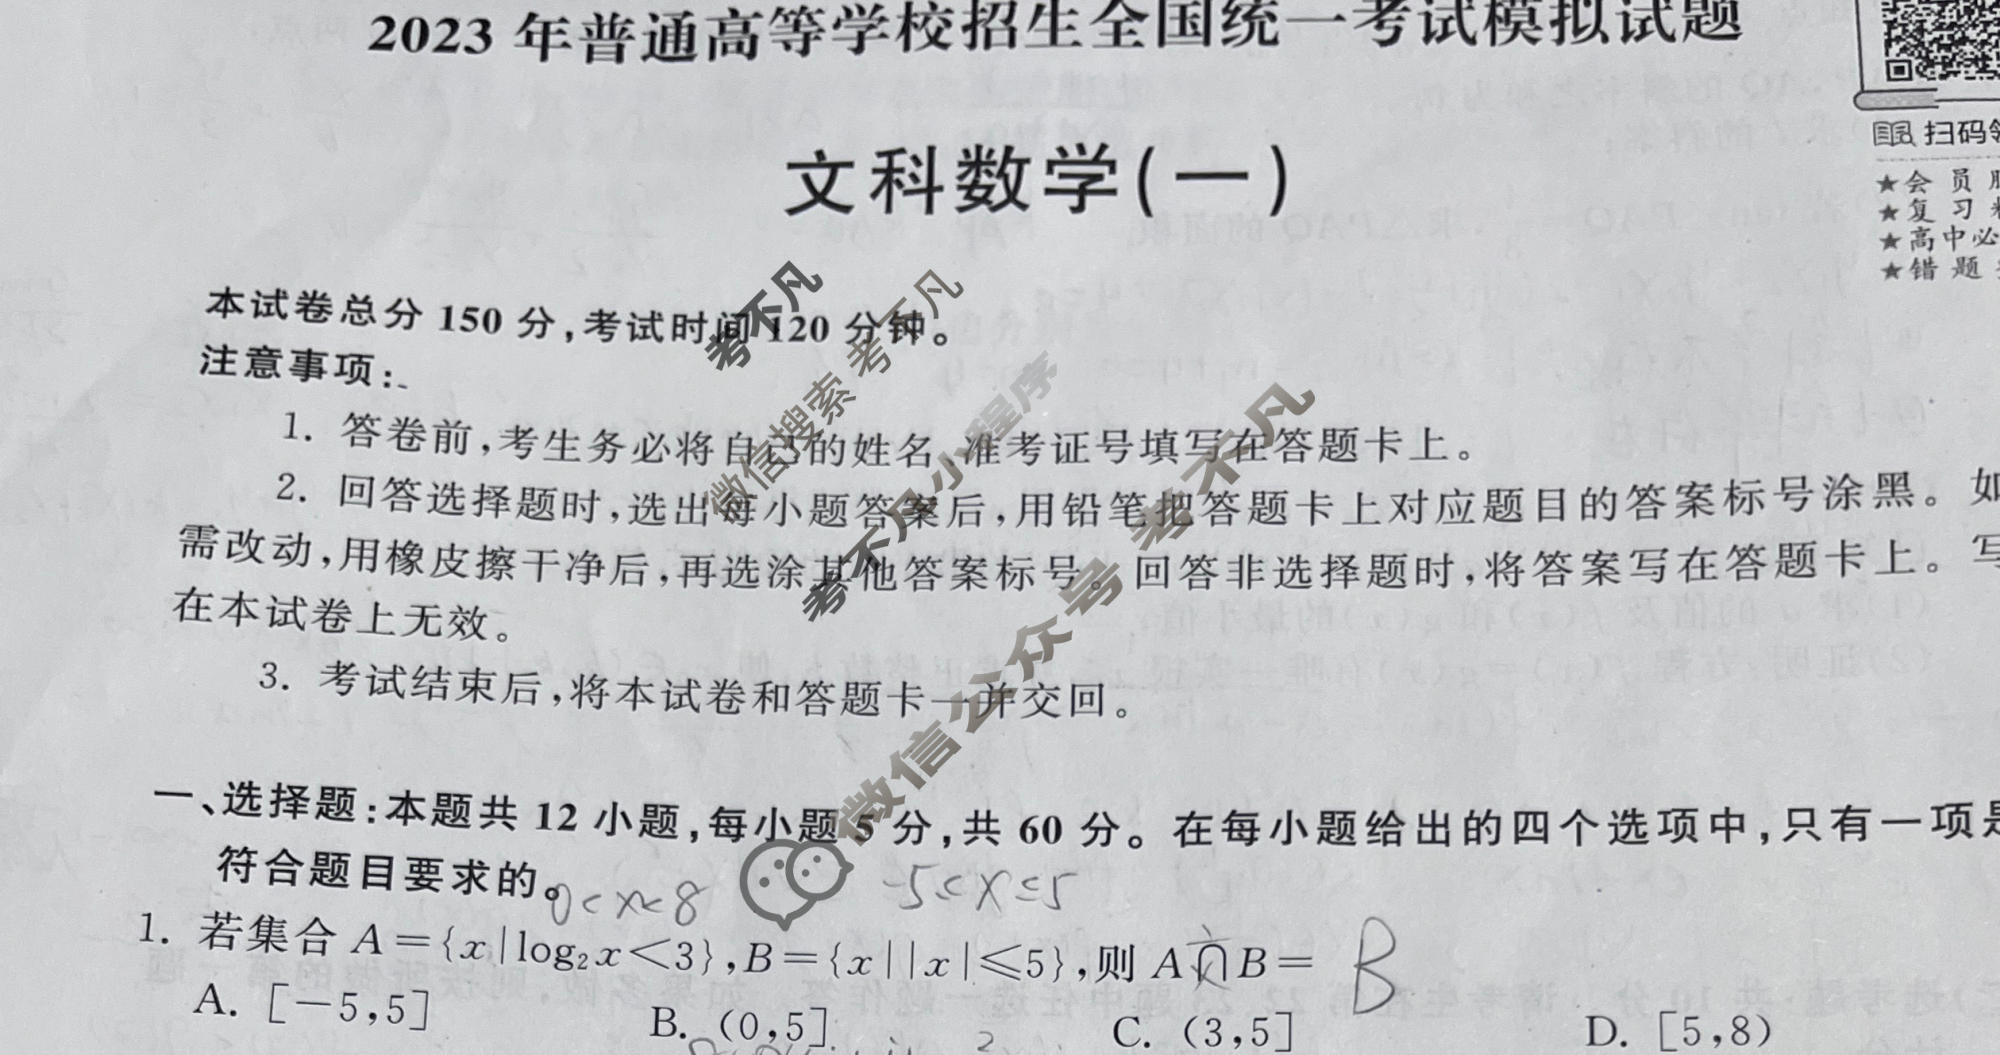 2023年普通高等学校招生全国统一考试模拟试题
文科数学(一)
扫码
★会员
★复习
★高中必
★错题
本试卷总分150分,考试时间120分钟。
注意事项:
1. 答卷前,考生务必将自己的姓名、准考证号填写在答题卡上。
2. 回答选择题时,选出每小题答案后,用铅笔把答题卡上对应题目的答案标号涂黑。如
需改动,用橡皮擦干净后,再选涂其他答案标号。回答非选择题时,将答案写在答题卡上。写
在本试卷上无效。
3. 考试结束后,将本试卷和答题卡一并交回。
考不凡
微信搜索 考不凡
考不凡小程序
微信公众号 考不凡
一、选择题:本题共12小题,每小题5分,共60分。在每小题给出的四个选项中,只有一项是
符合题目要求的。
0<x<8
-5≤x≤5
1. 若集合A={x|log₂x<3},B={x||x|≤5},则A∩B=
B
A. [-5,5]
B. (0,5]
C. (3,5]
D. [5,8)